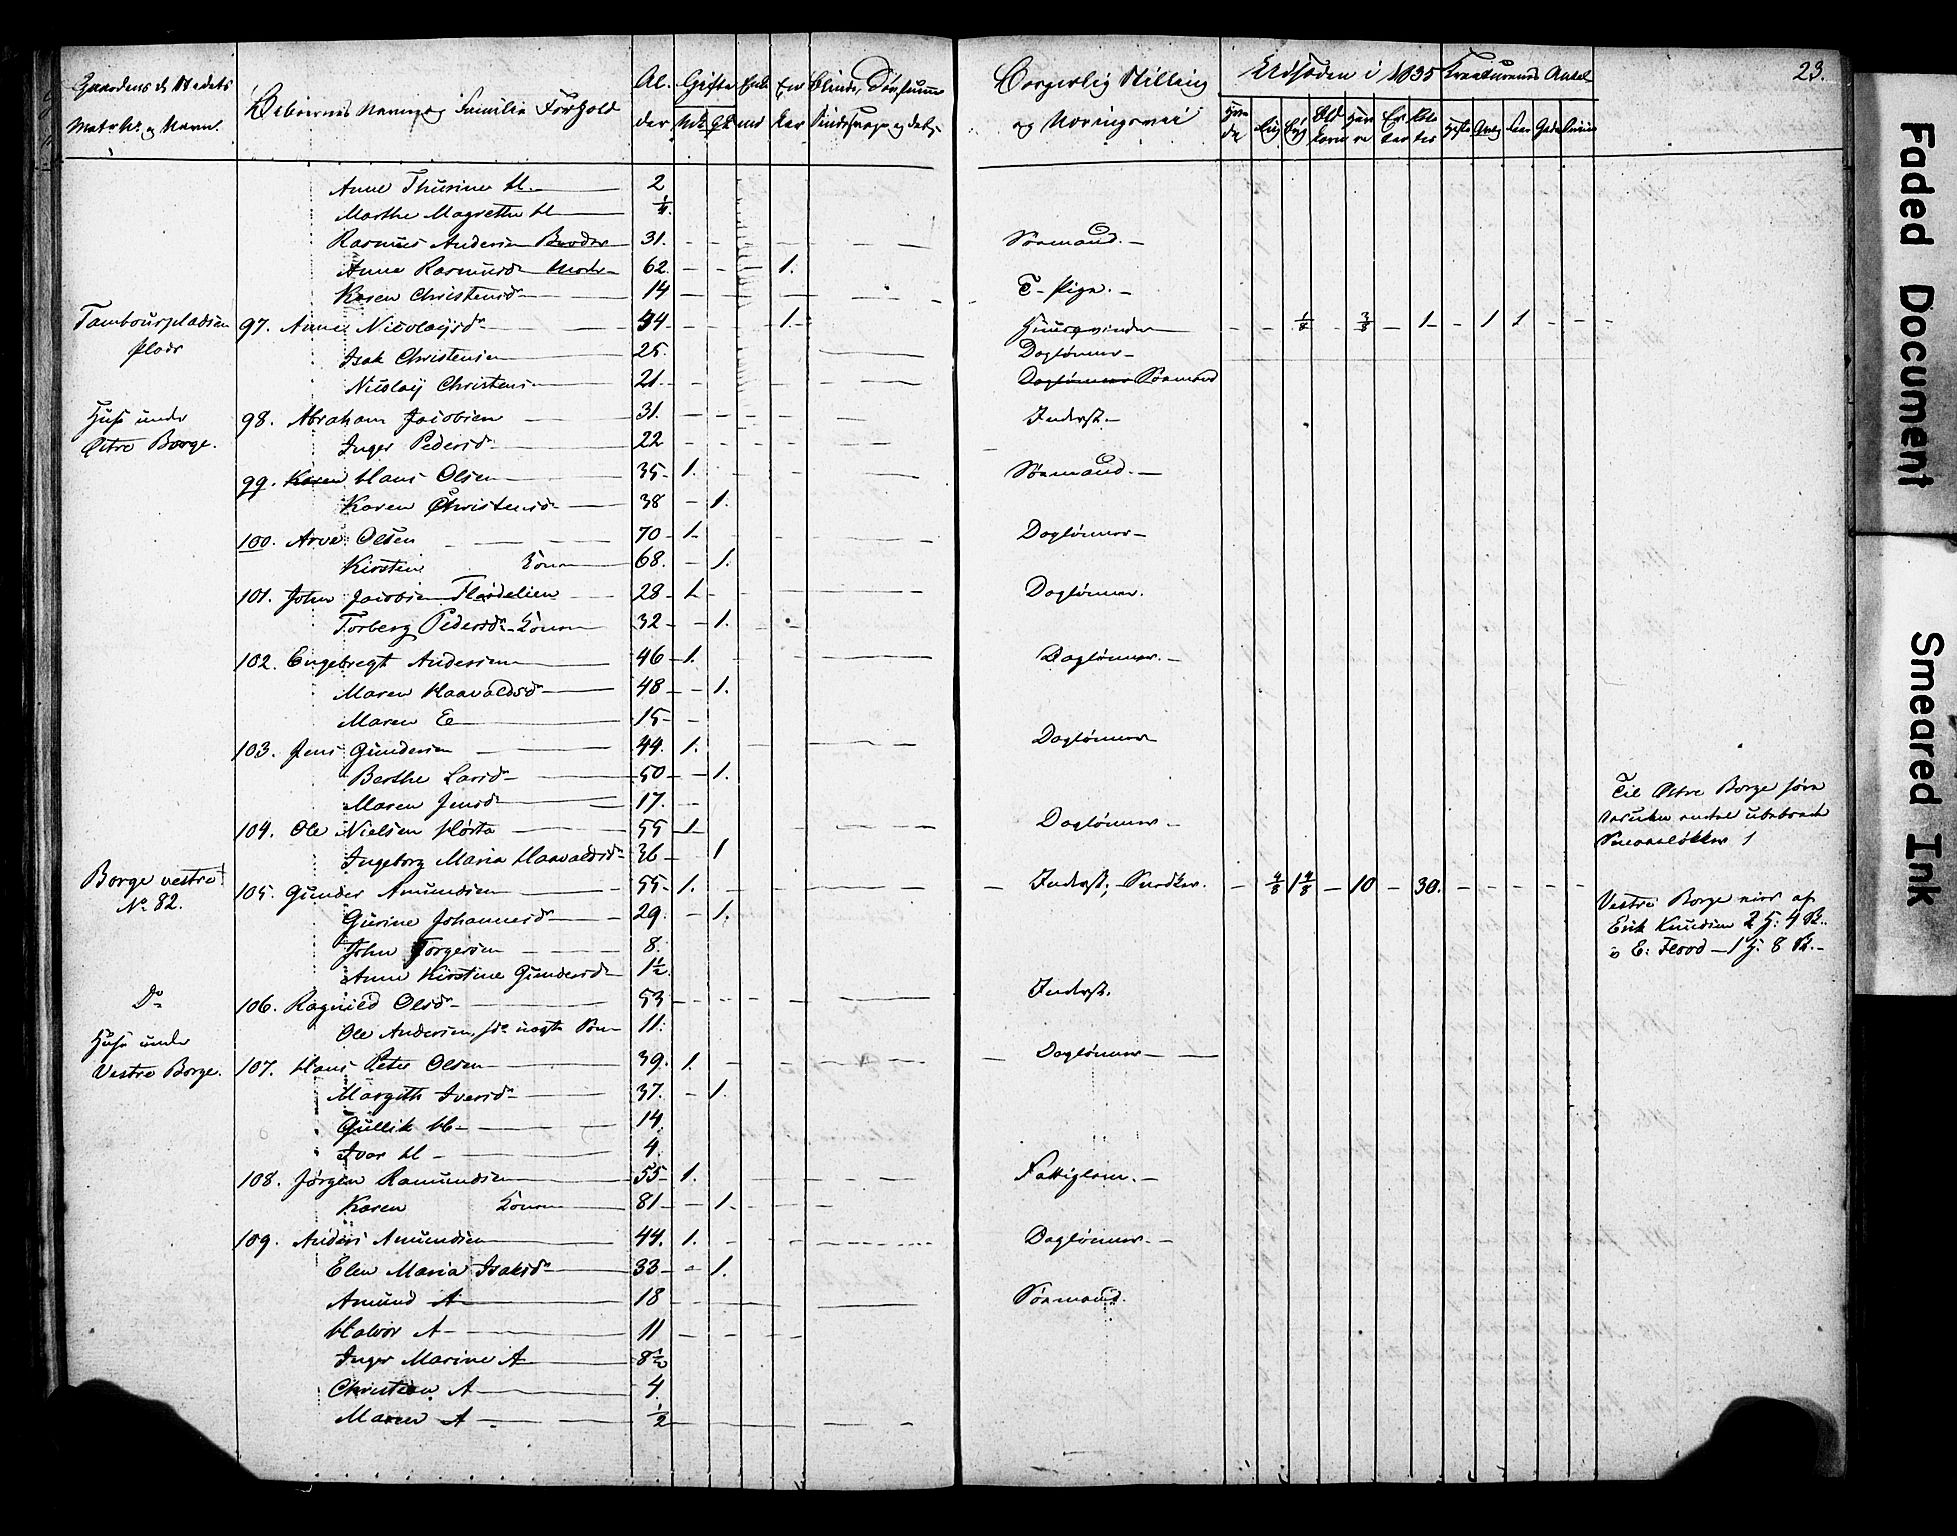 Gaardens Stædets Matr No. og Navn.
Beboernes Navne og Familie Forhold
Al- der
Gifte Mk. Qk.
Enke- md
En- ker
Blinde, Døvstumme Sindssvage og deslige
Borgerlig Stilling og Næringsvei
Udsæden i 1835
Kreaturenes Antal
23.
Anne Thurine H. 2
Marthe Magrethe H 1/4
Rasmus Andersen Broder 31. Sømand.
Anne Rasmusd. Moder 62. 1.
Karen Christensd. 14 T-Pige.
Tambourpladsen Plads
97. Anne Nicolaysd. 54 1. Huusqvinde 1/8 3/8 1 1 1
Isak Christensen 25. Daglønner
Nicolay Christens. 21. Daglønner Sømand
Huse under Østre Borge.
98. Abraham Jacobsen 31. Inderst.
Inger Pedersd. 22
99. Karen Hans Olsen 35 1. Sømand.
Karen Christensd. 38 1.
100. Arve Olsen 70 1. Daglønner
Kirstine Konen 68. 1.
101. John Jacobsen Flødelien 28 1. Daglønner.
Torberg Pedersd. Konen 32 1.
102. Engebregt Andersen 46 1. Daglønner.
Maren Haavaldsd. 48 1.
Maren E 15
103. Jens Gundersen 44. 1. Daglønner
Berthe Larsd. 50 1.
Maren Jensd. 17.
104. Ole Nielsen Hørta 55 1 Daglønner
Ingeborg Maria Haavaldsd. 36 1
Til Østre Borge
1
Borge vestre No. 82.
105. Gunder Amundsen 55 1. Inderst, Snedker. 4/8 1 4/8 10 30.
Gurine Johannesd. 29. 1.
John Torgersen 8.
Anne Kirstine Gundersd. 1 1/2
Vestre Borge eies af
Erik Knudsen 2 5: 4 B.
o E: Flood 1 5: 8 B.
Do
106. Ragnild Olsd. 53 Inderst.
Ole Andersen, uægte Søn 11.
Huse under Vestre Borge.
107. Hans Peter Olsen 39. 1. Daglønner
Margith Iversd. 37. 1.
Gullik H 14.
Iver H 4.
108. Jørgen Ramundsen 55 1. Fattiglem.
Karen Konen 81 1.
109. Anders Amundsen 44. 1. Daglønner.
Elen Maria Isaksd. 33 1.
Amund A 18 Sømand.
Halvor A 11
Inger Marine A 8 1/2
Christian A 4
Maren A 1/2
Faded Document
Smeared Ink